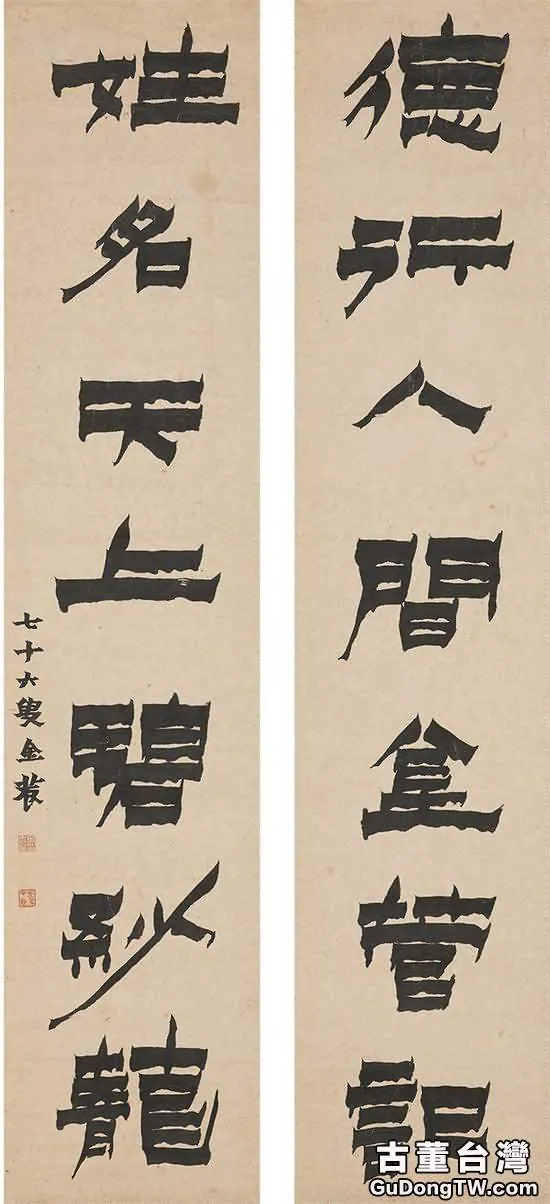 德行人間金管記
姓名天上碧紗龍
七十六叟金農
古董台灣
GuDongTW.com